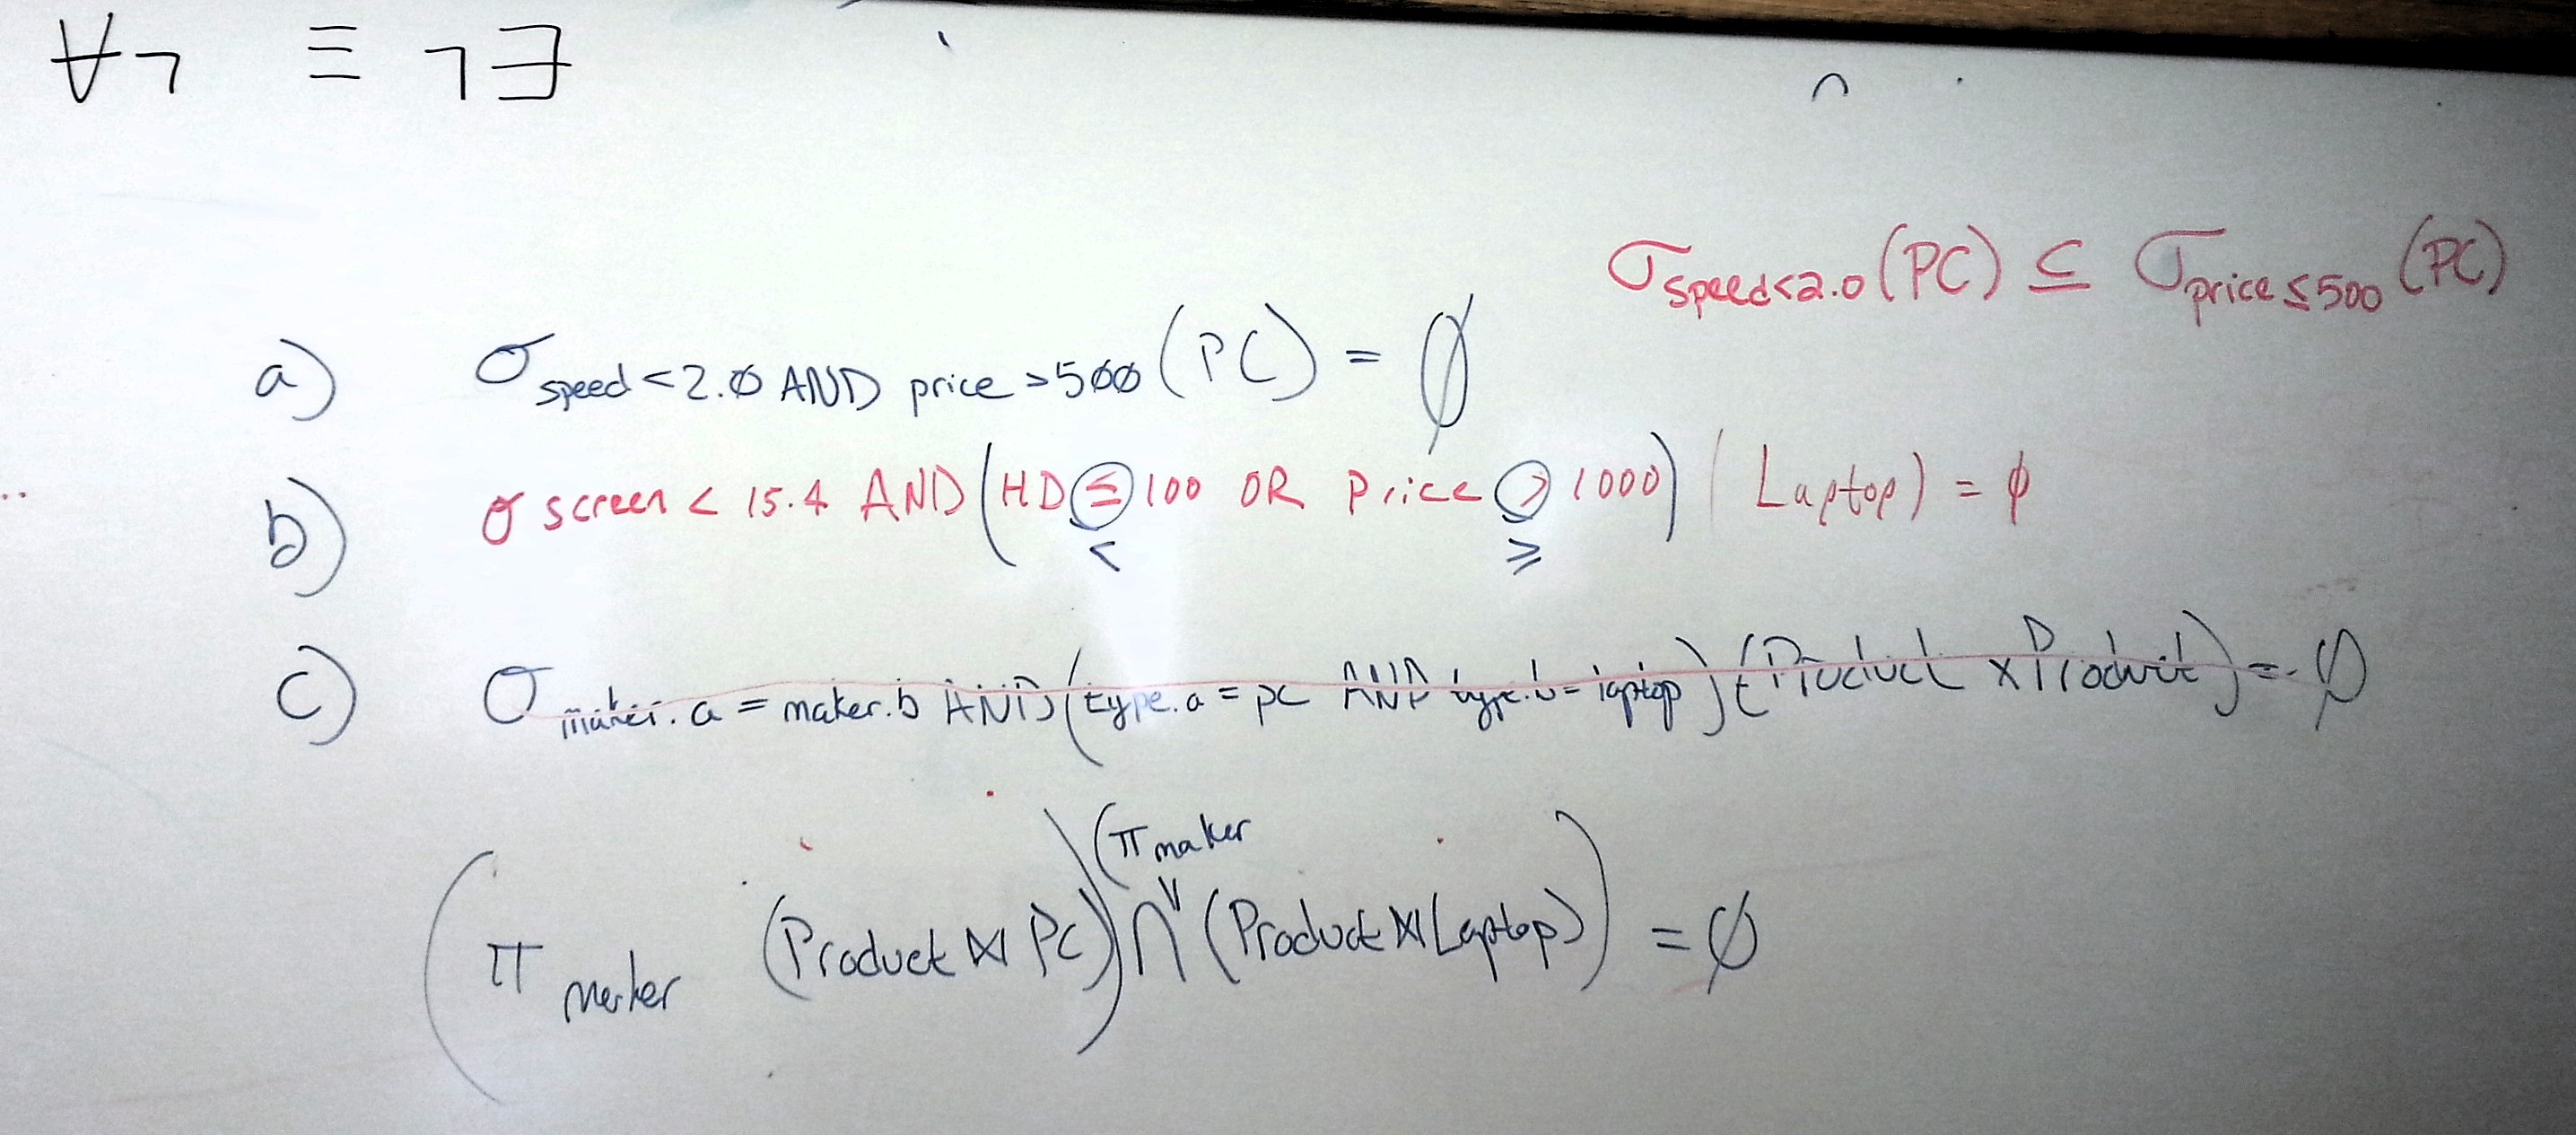 ∀¬ ≡ ¬∃
σ speed<2.0 (PC) ⊆ σ price≤500 (PC)
a) σ speed<2.0 AND price>500 (PC) = ∅
b) σ screen < 15.4 AND (HD ≤ 100 OR Price > 1000) (Laptop) = ∅
< ≥
c) σ maker.a = maker.b AND (type.a = pc AND type.b = laptop) (Product × Product) = ∅
(π maker
(π maker (Product ⋈ PC)) ∩ (Product ⋈ Laptop)) = ∅